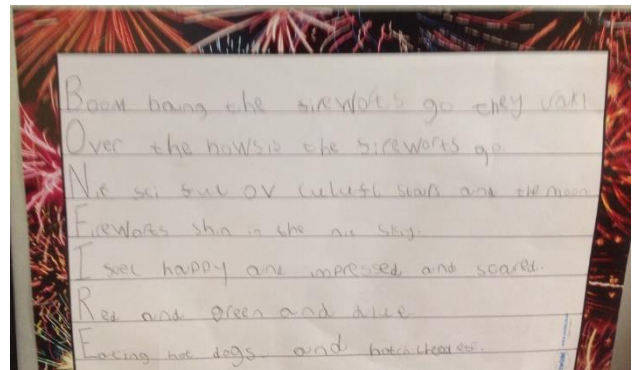 Boom baing the sireworts go they
Over the howsis the sireworts go.
Nit sci ful ov culufl stars and the moon
Fireworts shin in the nit skiy.
I seel happy and impressed and scared.
Red and green and blue
Eating hot dogs and